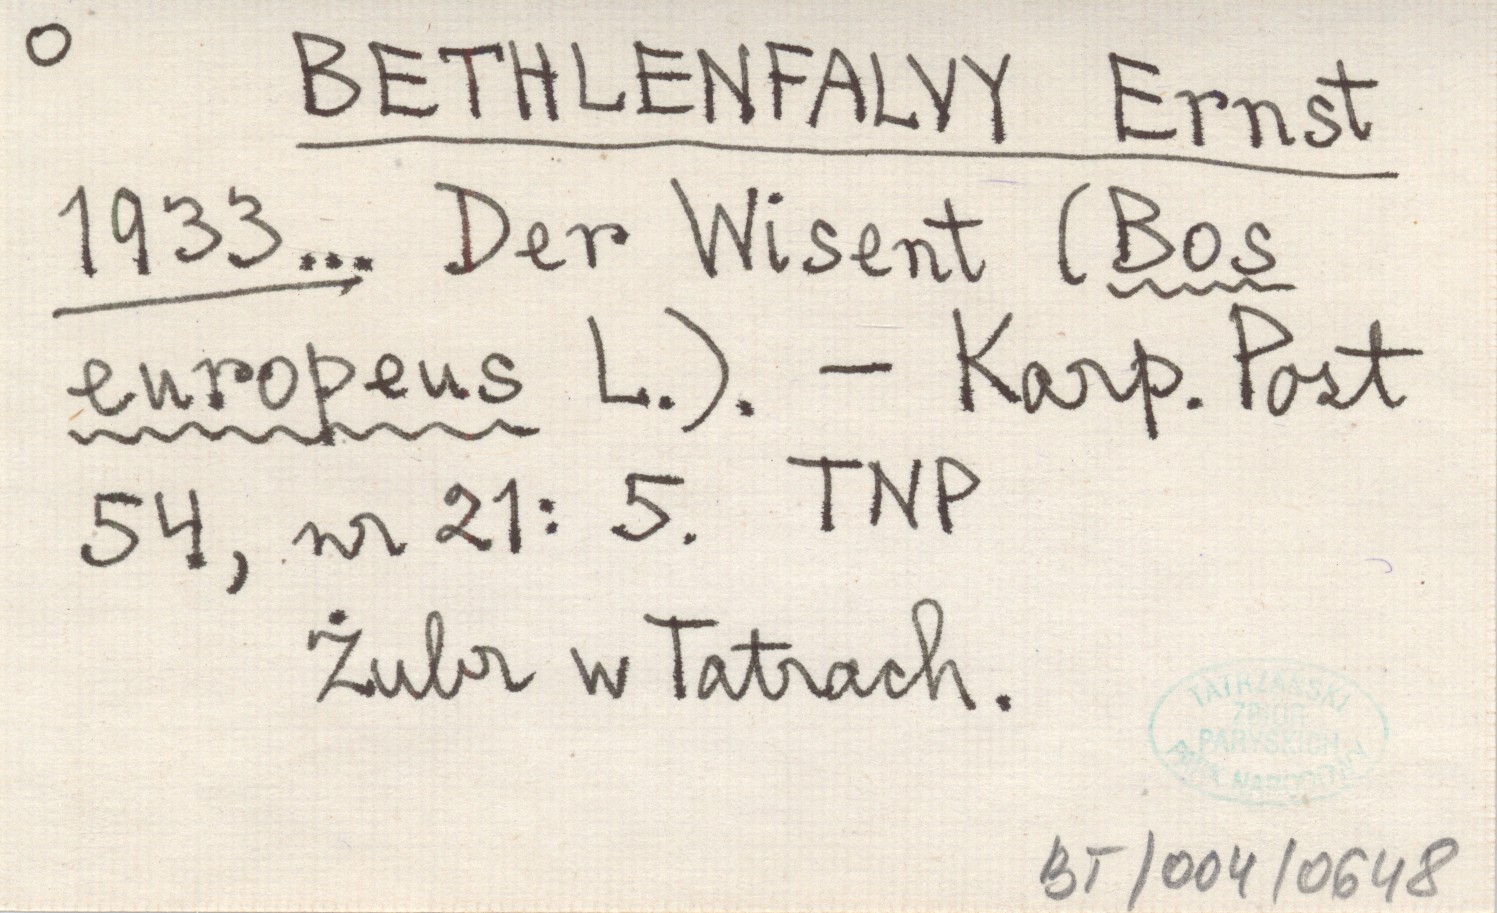 BETHLENFALVY Ernst
1933... Der Wisent (Bos
europeus L.). – Karp. Post
54, nr 21: 5. TNP
Żubr w Tatrach.
TATRZAŃSKI
ZBIÓR
PARYSKICH
PARK NARODOWY
BT/004/0648